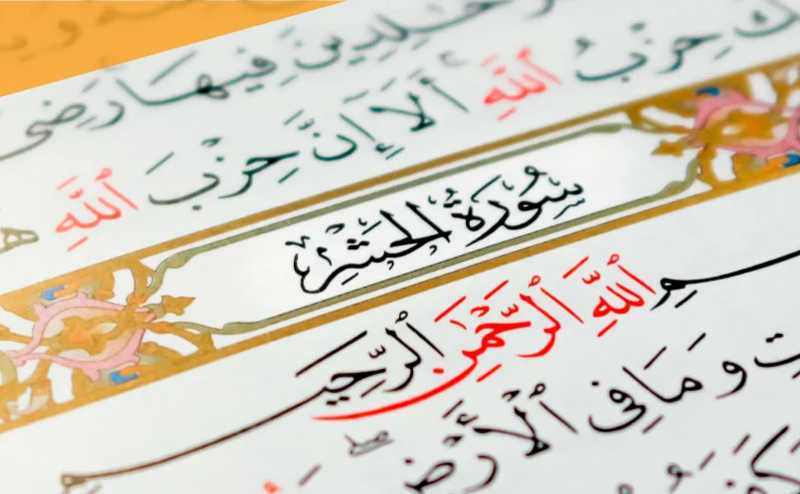 خَـٰلِدِينَ فِيهَا رَضِىَ
حِزْبُ ٱللَّهِ أَلَآ إِنَّ حِزْبَ ٱللَّهِ
سُورَةُ الحَشْرِ
ٱللَّهِ ٱلرَّحْمَٰنِ ٱلرَّحِي
وَمَا فِى ٱلْأَرْضِ